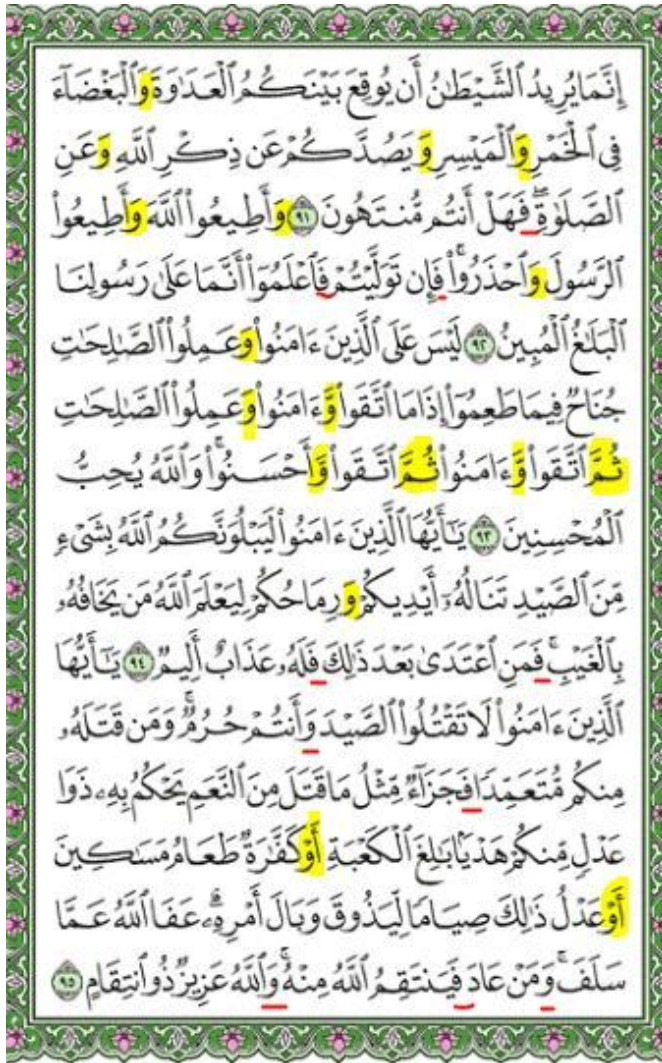 إِنَّمَا يُرِيدُ ٱلشَّيْطَـٰنُ أَن يُوقِعَ بَيْنَكُمُ ٱلْعَدَٰوَةَ وَٱلْبَغْضَآءَ
فِى ٱلْخَمْرِ وَٱلْمَيْسِرِ وَيَصُدَّكُمْ عَن ذِكْرِ ٱللَّهِ وَعَنِ
ٱلصَّلَوٰةِ ۖ فَهَلْ أَنتُم مُّنتَهُونَ ٩١ وَأَطِيعُوا۟ ٱللَّهَ وَأَطِيعُوا۟
ٱلرَّسُولَ وَٱحْذَرُوا۟ ۚ فَإِن تَوَلَّيْتُمْ فَٱعْلَمُوٓا۟ أَنَّمَا عَلَىٰ رَسُولِنَا
ٱلْبَلَـٰغُ ٱلْمُبِينُ ٩٢ لَيْسَ عَلَى ٱلَّذِينَ ءَامَنُوا۟ وَعَمِلُوا۟ ٱلصَّـٰلِحَـٰتِ
جُنَاحٌ فِيمَا طَعِمُوٓا۟ إِذَا مَا ٱتَّقَوا۟ وَّءَامَنُوا۟ وَعَمِلُوا۟ ٱلصَّـٰلِحَـٰتِ
ثُمَّ ٱتَّقَوا۟ وَّءَامَنُوا۟ ثُمَّ ٱتَّقَوا۟ وَّأَحْسَنُوا۟ ۗ وَٱللَّهُ يُحِبُّ
ٱلْمُحْسِنِينَ ٩٣ يَـٰٓأَيُّهَا ٱلَّذِينَ ءَامَنُوا۟ لَيَبْلُوَنَّكُمُ ٱللَّهُ بِشَىْءٍ
مِّنَ ٱلصَّيْدِ تَنَالُهُۥٓ أَيْدِيكُمْ وَرِمَاحُكُمْ لِيَعْلَمَ ٱللَّهُ مَن يَخَافُهُۥ
بِٱلْغَيْبِ ۚ فَمَنِ ٱعْتَدَىٰ بَعْدَ ذَٰلِكَ فَلَهُۥ عَذَابٌ أَلِيمٌ ٩٤ يَـٰٓأَيُّهَا
ٱلَّذِينَ ءَامَنُوا۟ لَا تَقْتُلُوا۟ ٱلصَّيْدَ وَأَنتُمْ حُرُمٌ ۚ وَمَن قَتَلَهُۥ
مِنكُم مُّتَعَمِّدًا فَجَزَآءٌ مِّثْلُ مَا قَتَلَ مِنَ ٱلنَّعَمِ يَحْكُمُ بِهِۦ ذَوَا
عَدْلٍ مِّنكُمْ هَدْيًۢا بَـٰلِغَ ٱلْكَعْبَةِ أَوْ كَفَّـٰرَةٌ طَعَامُ مَسَـٰكِينَ
أَوْ عَدْلُ ذَٰلِكَ صِيَامًا لِّيَذُوقَ وَبَالَ أَمْرِهِۦ ۗ عَفَا ٱللَّهُ عَمَّا
سَلَفَ ۚ وَمَنْ عَادَ فَيَنتَقِمُ ٱللَّهُ مِنْهُ ۗ وَٱللَّهُ عَزِيزٌ ذُو ٱنتِقَامٍ ٩٥